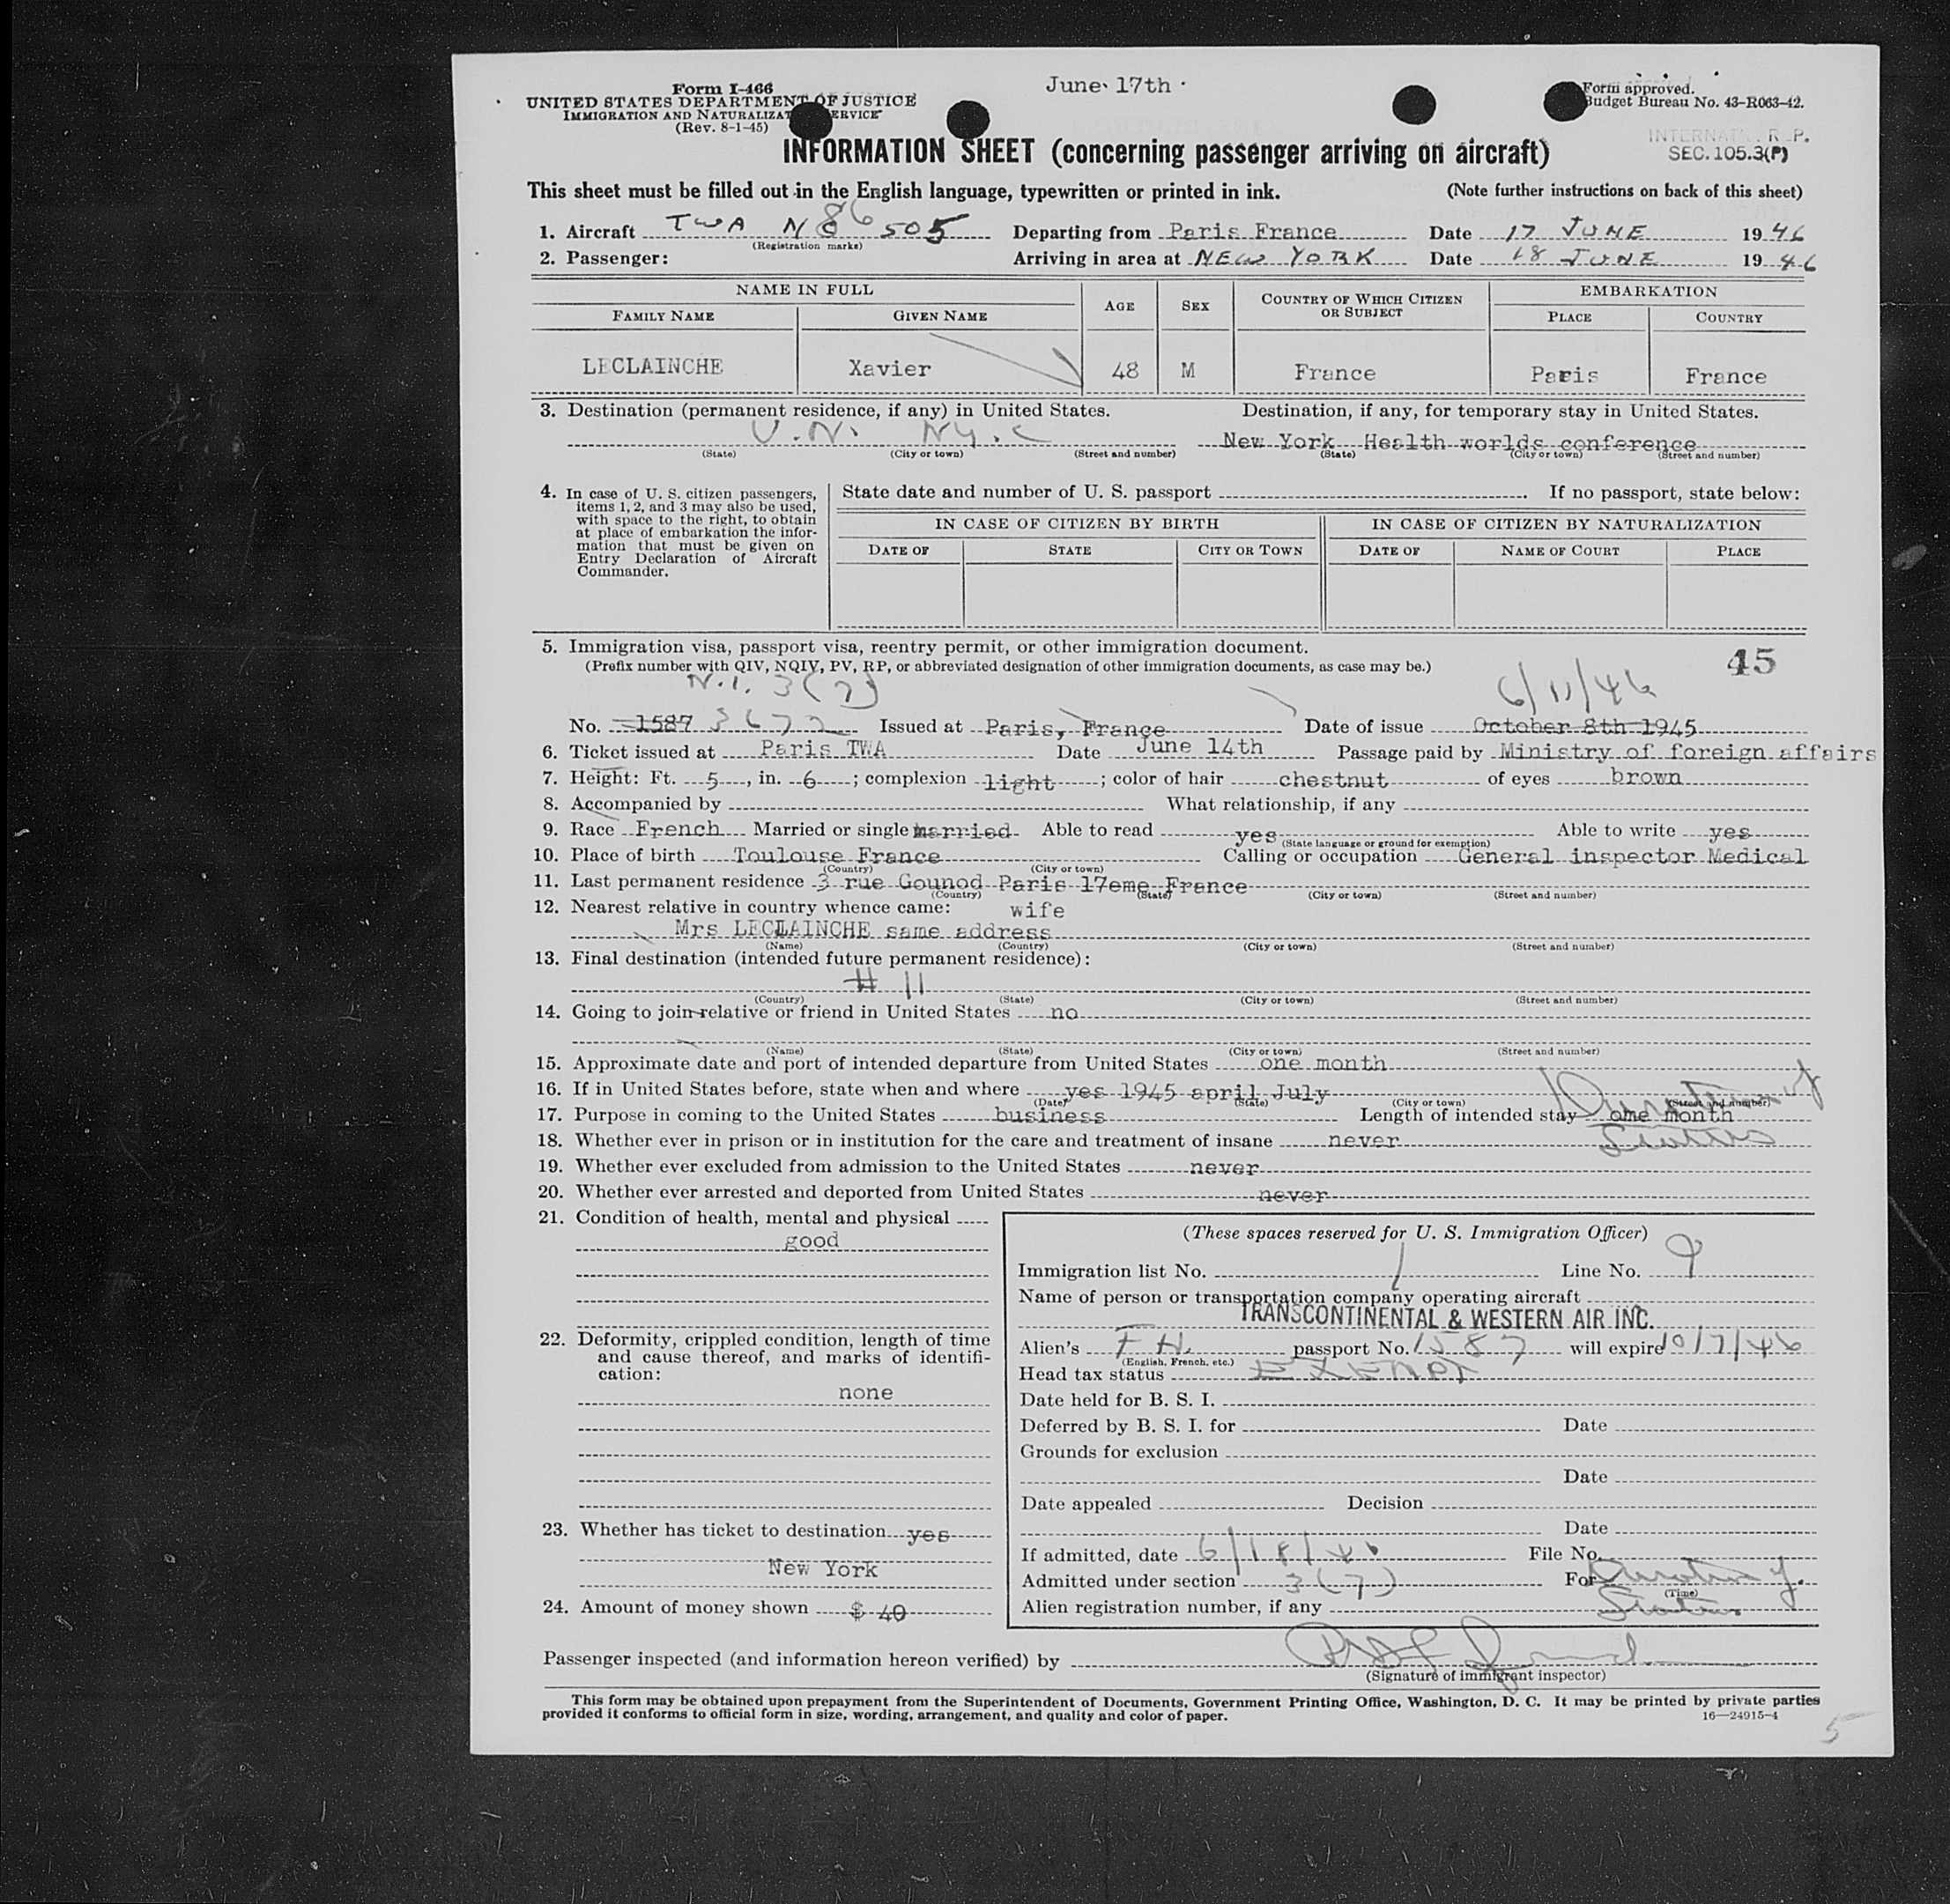 Form I-466
UNITED STATES DEPARTMENT OF JUSTICE
IMMIGRATION AND NATURALIZAT ERVICE
(Rev. 8-1-45)
June 17th
Form approved.
Budget Bureau No. 43-R063-42.
SEC. 105.3(P)
INFORMATION SHEET (concerning passenger arriving on aircraft)
This sheet must be filled out in the English language, typewritten or printed in ink. (Note further instructions on back of this sheet)
1. Aircraft TWA N86505 Departing from Paris France Date 17 JUNE 1946
(Registration marks)
2. Passenger: Arriving in area at NEW YORK Date 18 JUNE 1946
NAME IN FULL AGE SEX COUNTRY OF WHICH CITIZEN OR SUBJECT EMBARKATION
FAMILY NAME GIVEN NAME PLACE COUNTRY
LECLAINCHE Xavier 48 M France Paris France
3. Destination (permanent residence, if any) in United States. Destination, if any, for temporary stay in United States.
U.N. NY.C New York Health worlds conference
(State) (City or town) (Street and number) (State) (City or town) (Street and number)
4. In case of U. S. citizen passengers, items 1, 2, and 3 may also be used, with space to the right, to obtain at place of embarkation the information that must be given on Entry Declaration of Aircraft Commander.
State date and number of U. S. passport . If no passport, state below:
IN CASE OF CITIZEN BY BIRTH IN CASE OF CITIZEN BY NATURALIZATION
DATE OF STATE CITY OR TOWN DATE OF NAME OF COURT PLACE
5. Immigration visa, passport visa, reentry permit, or other immigration document.
(Prefix number with QIV, NQIV, PV, RP, or abbreviated designation of other immigration documents, as case may be.)
45
N.I. 3(7) 6/11/46
No. 1587 3672 Issued at Paris, France Date of issue October 8th 1945
6. Ticket issued at Paris TWA Date June 14th Passage paid by Ministry of foreign affairs
7. Height: Ft. 5, in. 6; complexion light; color of hair chestnut of eyes brown
8. Accompanied by What relationship, if any
9. Race French Married or single married Able to read yes Able to write yes
(State language or ground for exemption)
10. Place of birth Toulouse France Calling or occupation General inspector Medical
(Country) (City or town)
11. Last permanent residence 3 rue Gounod Paris 17eme France
(Country) (State) (City or town) (Street and number)
12. Nearest relative in country whence came: wife
Mrs LECLAINCHE same address
(Name) (Country) (City or town) (Street and number)
13. Final destination (intended future permanent residence):
# 11
(Country) (State) (City or town) (Street and number)
14. Going to join relative or friend in United States no
(Name) (State) (City or town) (Street and number)
15. Approximate date and port of intended departure from United States one month
16. If in United States before, state when and where yes 1945 april July
(Date) (State) (City or town) (Street and number)
Duration of
17. Purpose in coming to the United States business Length of intended stay one month
Status
18. Whether ever in prison or in institution for the care and treatment of insane never
19. Whether ever excluded from admission to the United States never
20. Whether ever arrested and deported from United States never
21. Condition of health, mental and physical
good
22. Deformity, crippled condition, length of time and cause thereof, and marks of identification:
none
23. Whether has ticket to destination yes
New York
24. Amount of money shown $ 40
(These spaces reserved for U. S. Immigration Officer)
Immigration list No. 1 Line No. 9
Name of person or transportation company operating aircraft
TRANSCONTINENTAL & WESTERN AIR INC.
Alien's FH. passport No. 1587 will expire 10/7/46
(English, French, etc.)
Head tax status EXEMPT
Date held for B. S. I.
Deferred by B. S. I. for Date
Grounds for exclusion
Date
Date appealed Decision
Date
If admitted, date 6/18/46 File No.
Admitted under section 3(7) For Duration of
(Time)
Alien registration number, if any Status
Passenger inspected (and information hereon verified) by
(Signature of immigrant inspector)
This form may be obtained upon prepayment from the Superintendent of Documents, Government Printing Office, Washington, D. C. It may be printed by private parties
provided it conforms to official form in size, wording, arrangement, and quality and color of paper. 16—24915-4
5